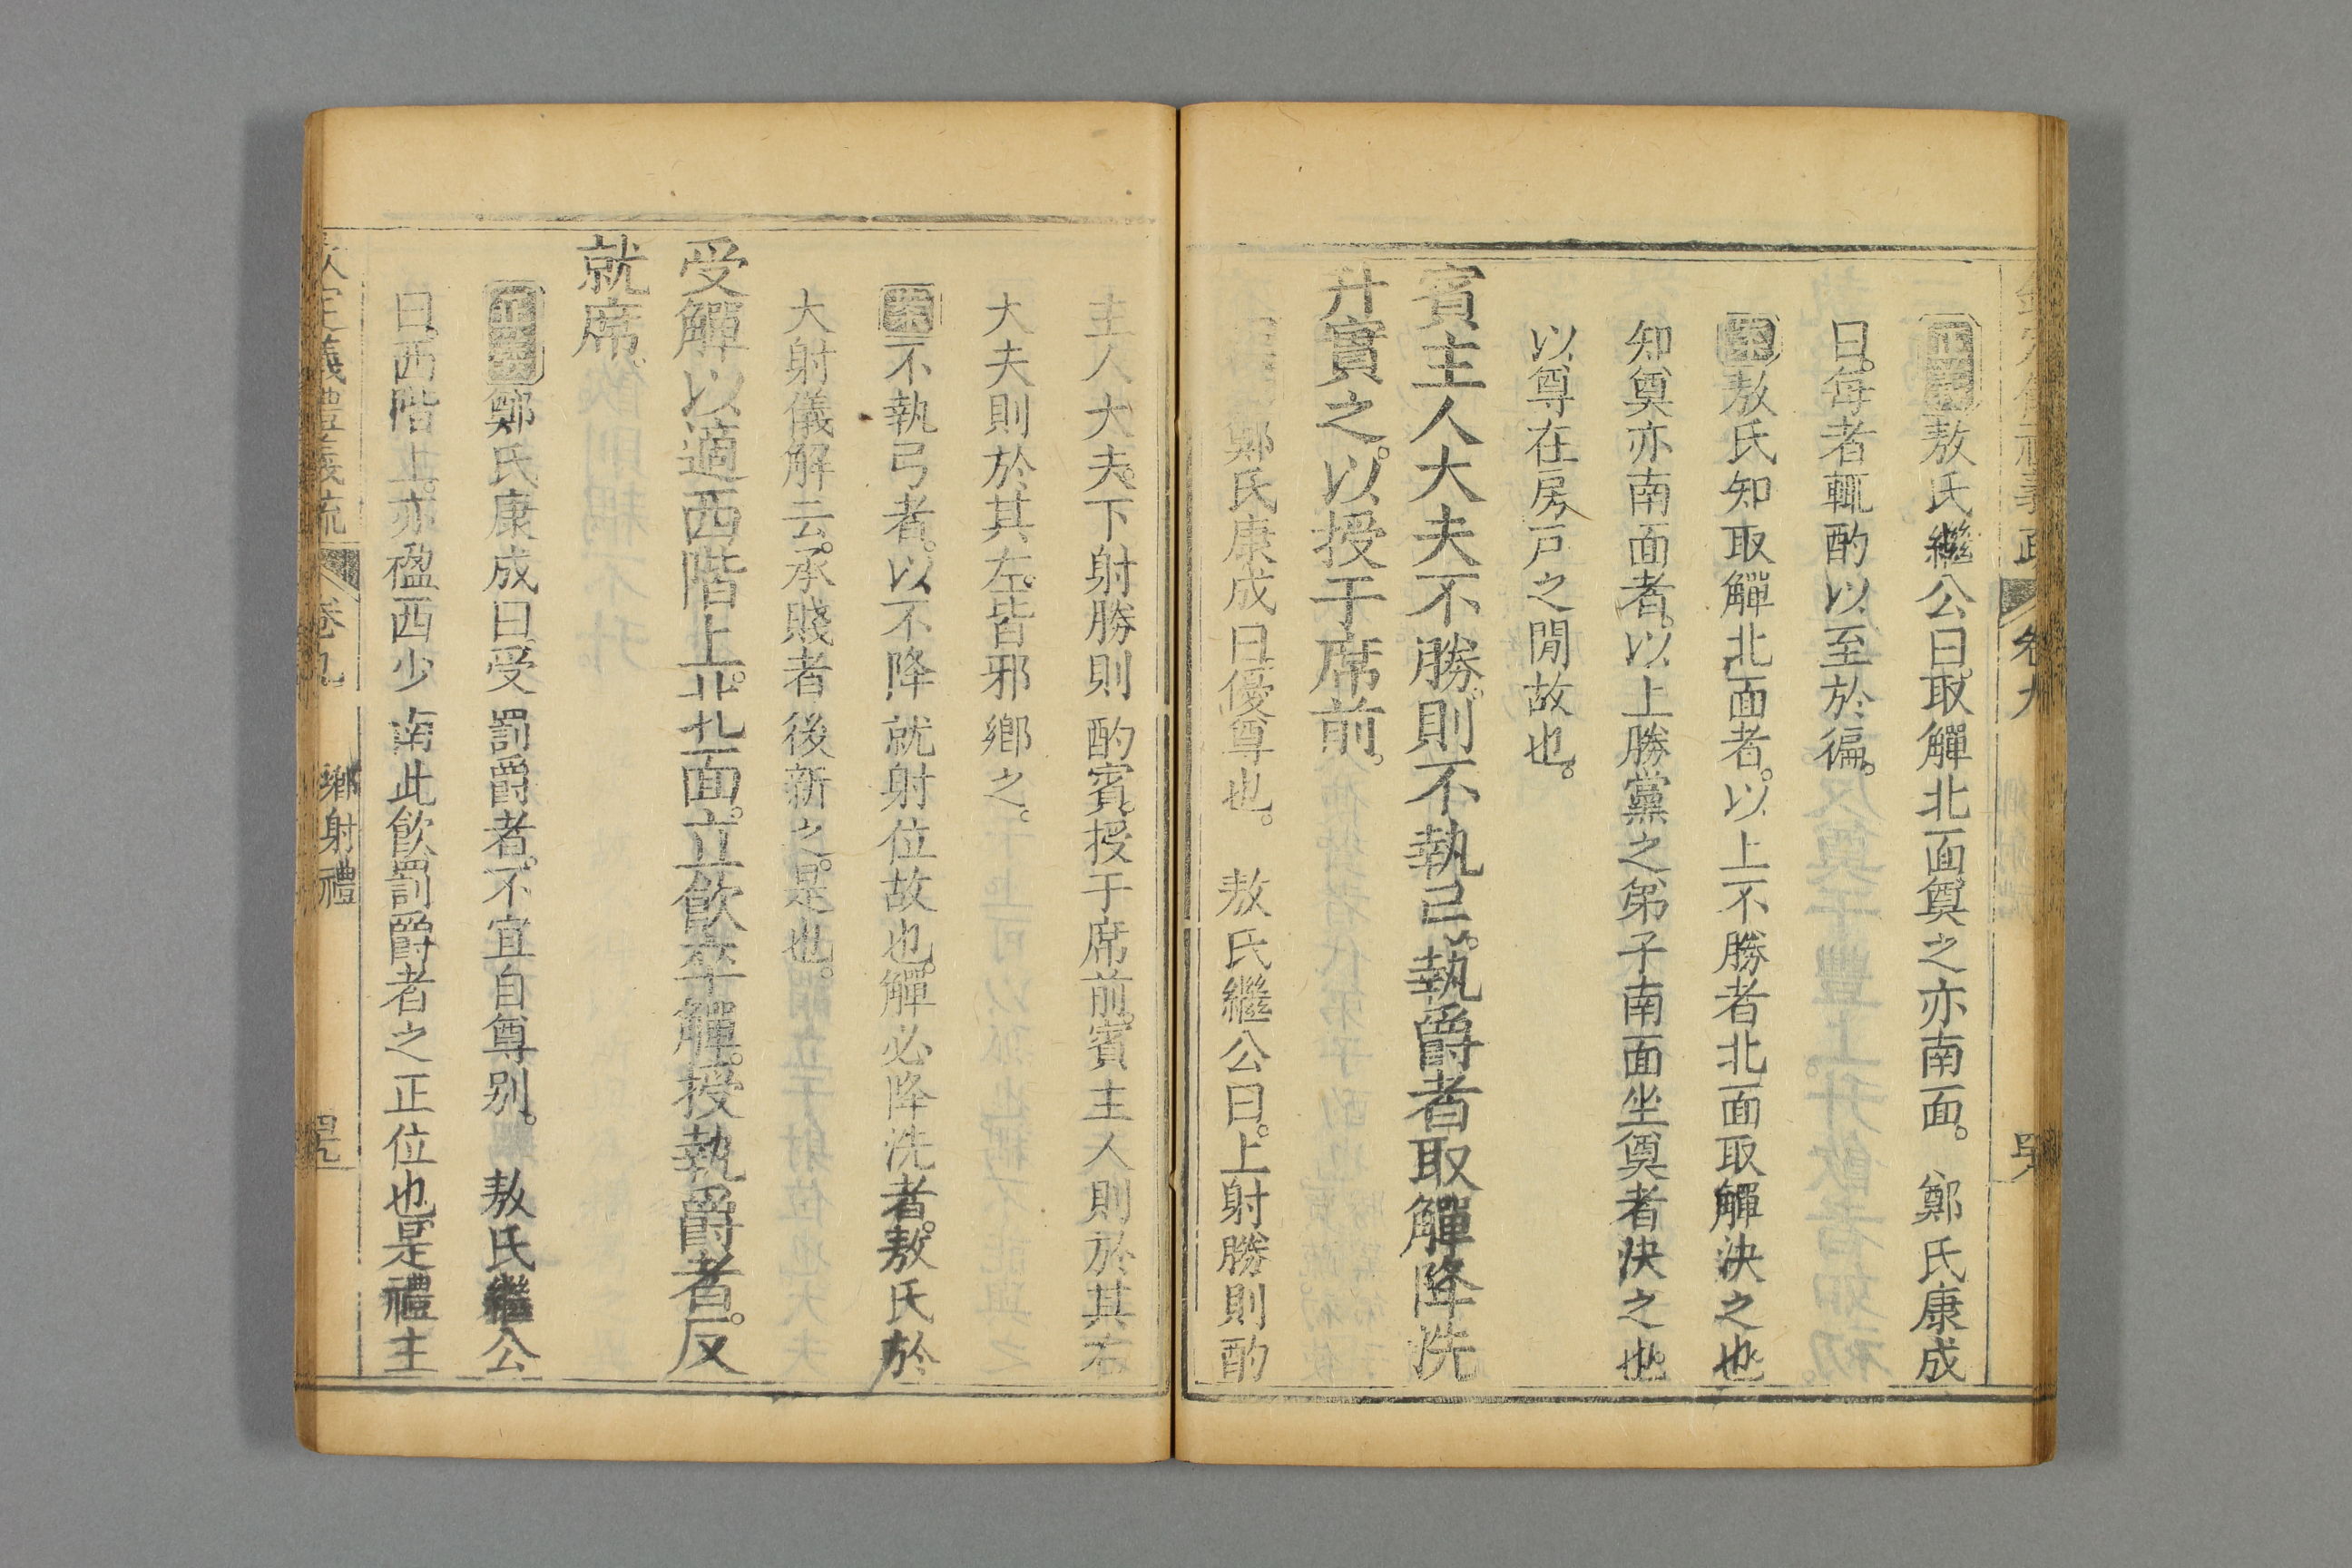 卷九
正義敖氏繼公曰。取觶北面奠之亦南面。 鄭氏康成
曰。每者輒酌以至於徧。
敖氏知取觶北面者。以上不勝者北面取觶決之也。
知奠亦南面者。以上勝黨之弟子南面坐奠者決之也。
以尊在房戸之閒故也。
賓主人大夫不勝。則不執弓。執爵者取觶降洗
升實之。以授于席前。
鄭氏康成曰優尊也。 敖氏繼公曰。上射勝則酌
主人大夫。下射勝則酌賓。授于席前。賓主人則於其右
大夫則於其左。皆邪鄉之。
案不執弓者。以不降就射位故也。觶必降洗者。敖氏於
大射儀解云。承賤者後新之。是也。
受觶以適西階上。北面。立飲卒觶。授執爵者。反
就席。
正義鄭氏康成曰。受罰爵者。不宜自尊别。 敖氏繼公
曰。西階上。亦楹西少南此飲罰爵者之正位也是禮主
欽定儀禮義疏 卷九 鄉射禮